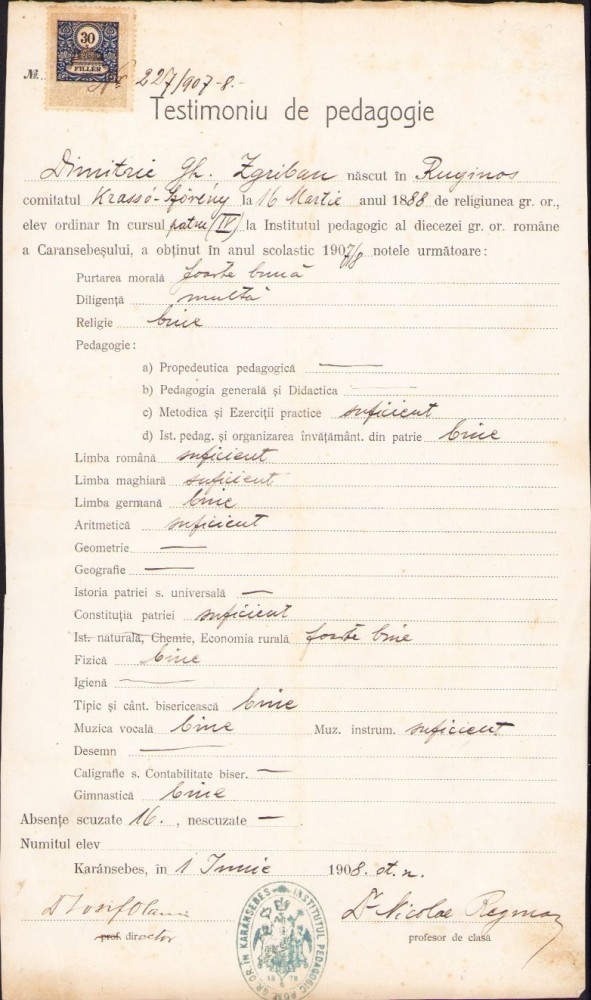 30
FILLÉR
№ 227/907-8.-
Testimoniu de pedagogie
Dimitrie Gh. Zgriban născut în Ruginos
comitatul Krassó-Szörény la 16 Martie anul 1888 de religiunea gr. or.,
elev ordinar în cursul patru (IV) la Institutul pedagogic al diecezei gr. or. române
a Caransebeșului, a obținut în anul scolastic 1907/8 notele următoare:
Purtarea morală foarte bună
Diligență multă
Religie bine
Pedagogie:
a) Propedeutica pedagogică —
b) Pedagogia generală și Didactica —
c) Metodica și Ezerciții practice suficient
d) Ist. pedag. și organizarea învățământ. din patrie bine
Limba română suficient
Limba maghiară suficient
Limba germană bine
Aritmetică suficient
Geometrie —
Geografie —
Istoria patriei s. universală —
Constituția patriei suficient
Ist. naturală, Chemie, Economia rurală foarte bine
Fizică bine
Igienă —
Tipic și cânt. bisericească bine
Muzica vocală bine Muz. instrum. suficient
Desemn —
Caligrafie s. Contabilitate biser. —
Gimnastică bine
Absențe scuzate 16. , nescuzate — .
Numitul elev
Karánsebes, în 1 Iunie 1908. st. n.
Dr Iosif Olariu Dr Nicolae Regman
prof. director profesor de clasă
INSTITUTUL PEDAGOGIC ROM. GR. OR. ÎN KARÁNSEBES